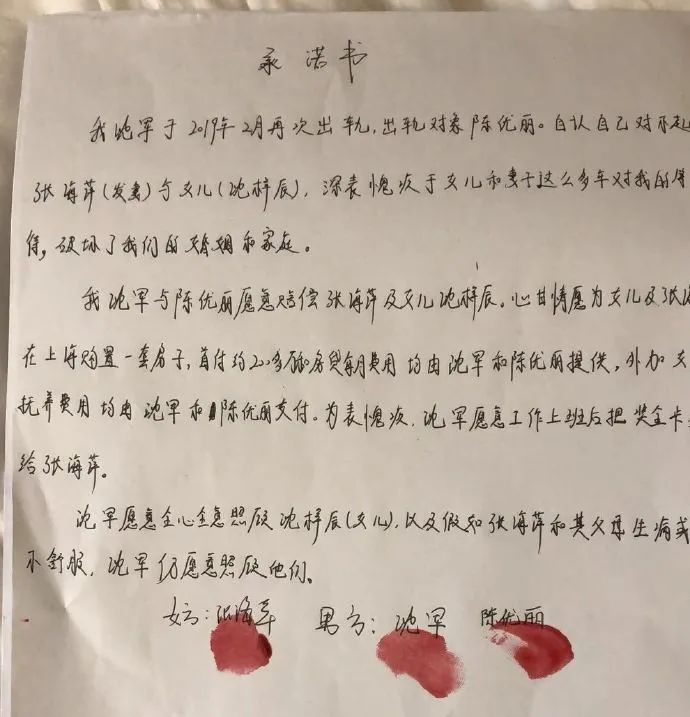 承诺书
我沈军于2019年2月再次出轨,出轨对象陈优丽。自认自己对不起
张海萍(发妻)与女儿(沈梓辰),深表愧疚于女儿和妻子这么多年对我的等
待,破坏了我们的婚姻和家庭。
我沈军与陈优丽愿意赔偿张海萍及女儿沈梓辰。心甘情愿为女儿及张海
在上海购置一套房子,首付约200多万和房贷每月费用均由沈军和陈优丽提供,外加女
抚养费用均由沈军和陈优丽支付。为表愧疚,沈军愿意工作上班后把奖金卡
给张海萍。
沈军愿意全心全意照顾沈梓辰(女儿),以及假如张海萍和其父母生病或
不舒服,沈军仍愿意照顾他们。
女方:张海萍 男方:沈军 陈优丽